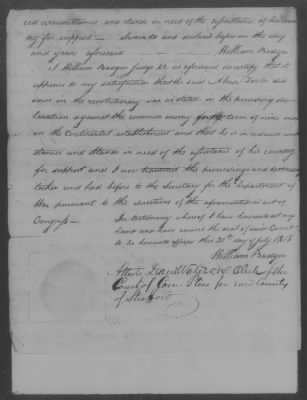 ced circumstances and stands in need of the assistance of his coun
try for support — Sworn to and declared before me the day
and year aforesaid — William Badger
I William Badger Judge &c as aforesaid certify that it
appears to my satisfaction that the said did
serve in the revolutionary war as stated in the preceding de
claration against the common enemy for the term of nine months
on the Continental establishment and that he is in reduced circum
stances and stands in need of the assistance of his country
for support and I now transmit the proceedings and testimony
taken and had before to the Secretary for the department of
War pursuant to the directions of the aforementioned act of
Congress —
In testimony whereof I have hereunto set my
hand and have caused the seal of said Court
to be hereunto affixed this 21st day of July 1818
William Badger
Attest, Clerk of the
Court of Com. Pleas for said County
of Strafford